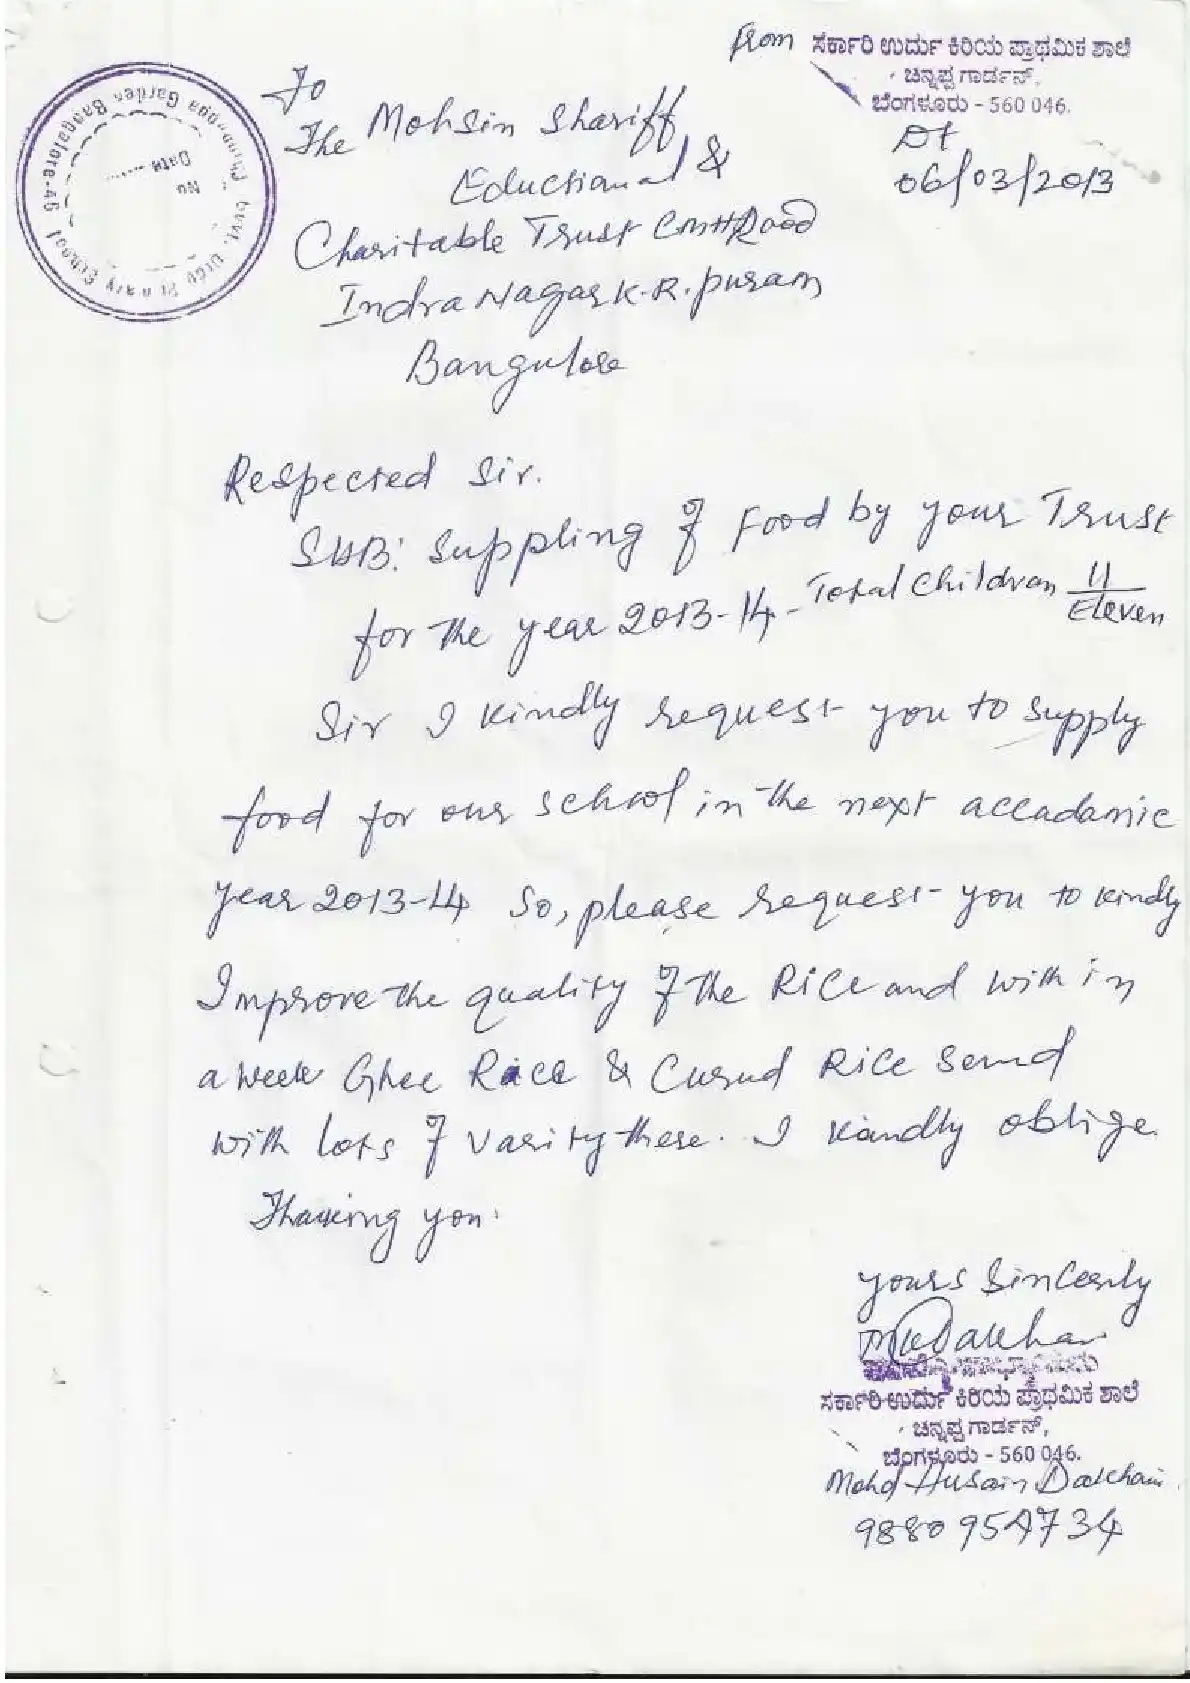 From ಸರ್ಕಾರಿ ಉರ್ದು ಕಿರಿಯ ಪ್ರಾಥಮಿಕ ಶಾಲೆ
ಚಿನ್ನಪ್ಪ ಗಾರ್ಡನ್,
ಬೆಂಗಳೂರು - 560 046.
Dt
06/03/2013
Govt. Urdu Primary School
Chinnappa Garden Bangalore-46
No
Date ........
To
The Mohsin Shariff
Eductional &
Charitable Trust CMH Road
Indra Nagar K.R. puram
Bangulore
Respected Sir.
SUB: Suppling of Food by your Trust
for the year 2013-14 - Total Children 11
Eleven
Sir I kindly request you to supply
food for our school in the next accadamic
year 2013-14 So, please request you to kindly
Improve the quality of the Rice and with in
a week Ghee Rice & Curud Rice Send
with lots of varity these. I kandly oblige.
Thanking you.
yours Sincerly
ಸರ್ಕಾರಿ ಉರ್ದು ಕಿರಿಯ ಪ್ರಾಥಮಿಕ ಶಾಲೆ
ಚಿನ್ನಪ್ಪ ಗಾರ್ಡನ್,
ಬೆಂಗಳೂರು - 560 046.
Mohd Husain Dakhani
9880954734